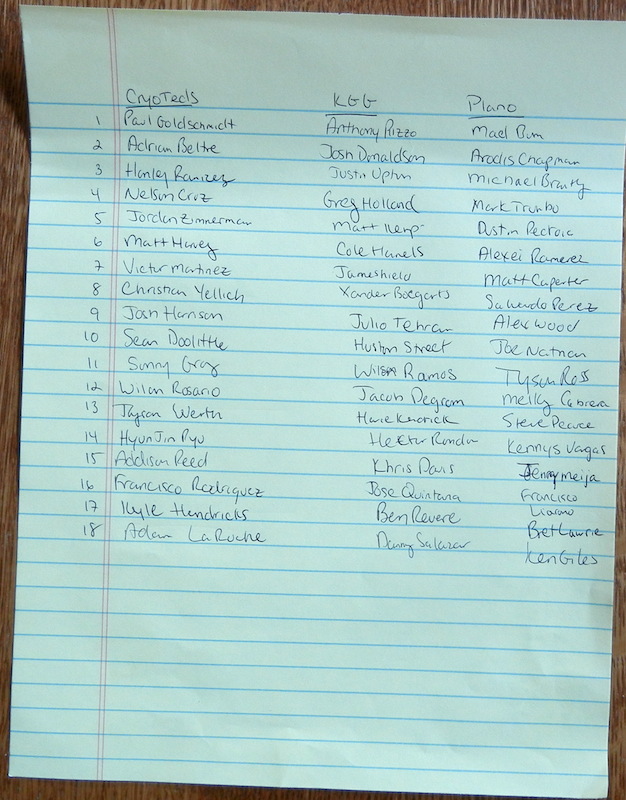 CryoTeds KGG Plano
1 Paul Goldschmidt Anthony Rizzo Mael Bum
2 Adrian Beltre Josh Donaldson Arodis Chapman
3 Hanley Ramirez Justin Upton Michael Brantly
4 Nelson Cruz Greg Holland Mark Trumbo
5 Jordan Zimmerman Matt Kemp Dustin Pedroia
6 Matt Harvey Cole Hamels Alexei Ramerez
7 Victor Martinez James Shield Matt Caperter
8 Christian Yellich Xander Boegarts Salverdo Perez
9 Josh Harrison Julio Tehran Alex Wood
10 Sean Doolittle Huston Street Joe Nathan
11 Sonny Gray Wilson Ramos Tyson Ross
12 Wilon Rosario Jacob Degrom Melky Cabrera
13 Jayson Werth Howie Kendrick Steve Pearce
14 HyunJin Ryu Hector Rondon Kennys Vargas
15 Addison Reed Khris Davis Jenry Meija
16 Francisco Rodriquez Jose Quintana Francisco
17 Kyle Hendricks Ben Revere Liriano
18 Adam LaRoche Danny Salazar Bret Lawrie
Ken Giles